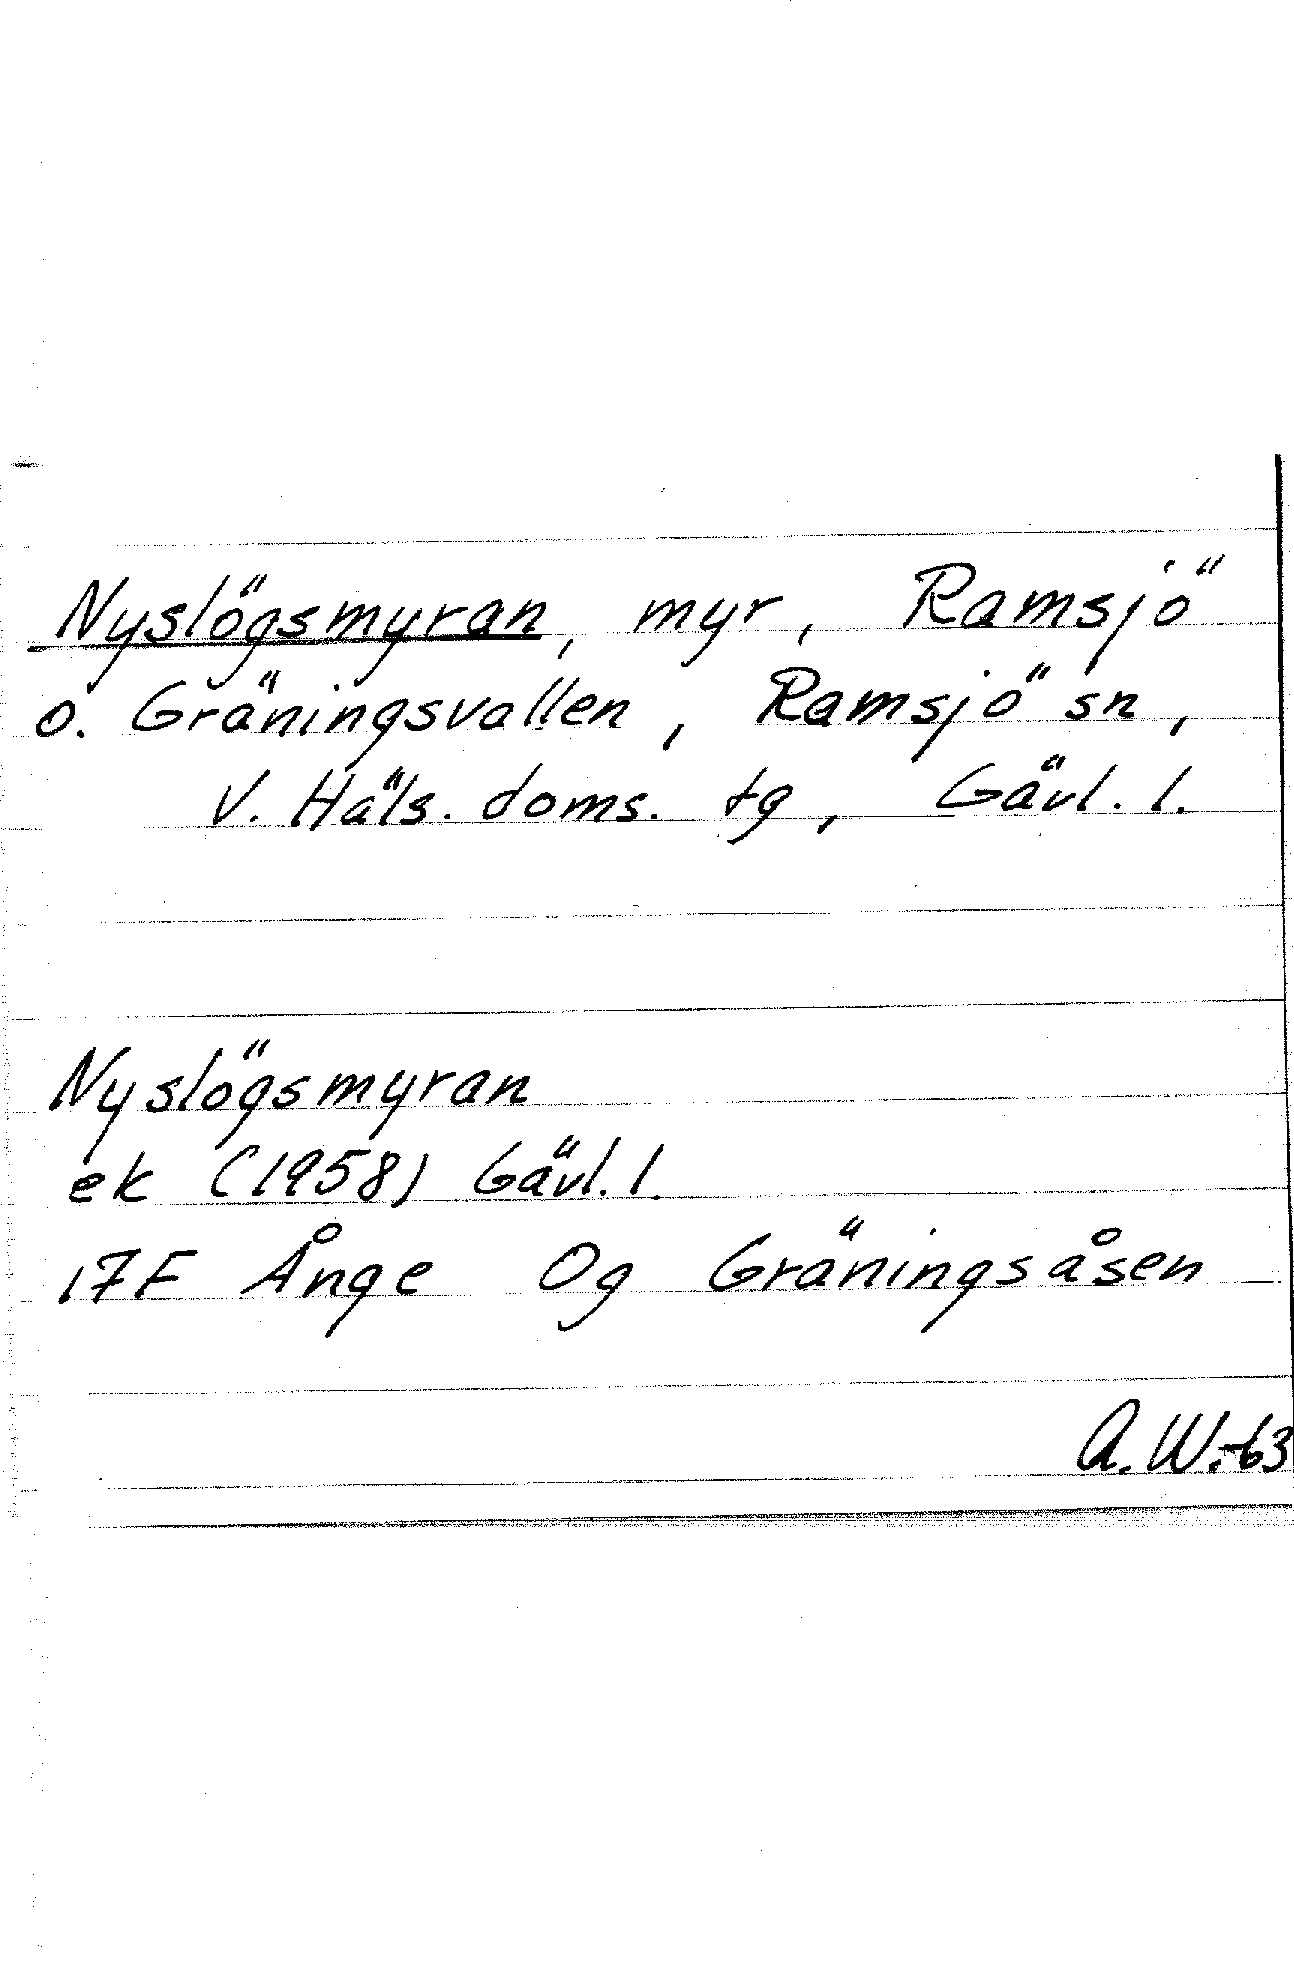 Nyslögsmyran, myr, Ramsjö
o. Gräningsvallen, Ramsjö sn,
V. Häls. doms. tg, Gävl. l.
Nyslögsmyran
ek (1958) Gävl. l.
17F Ånge Og Gräningsåsen
A. W.-63